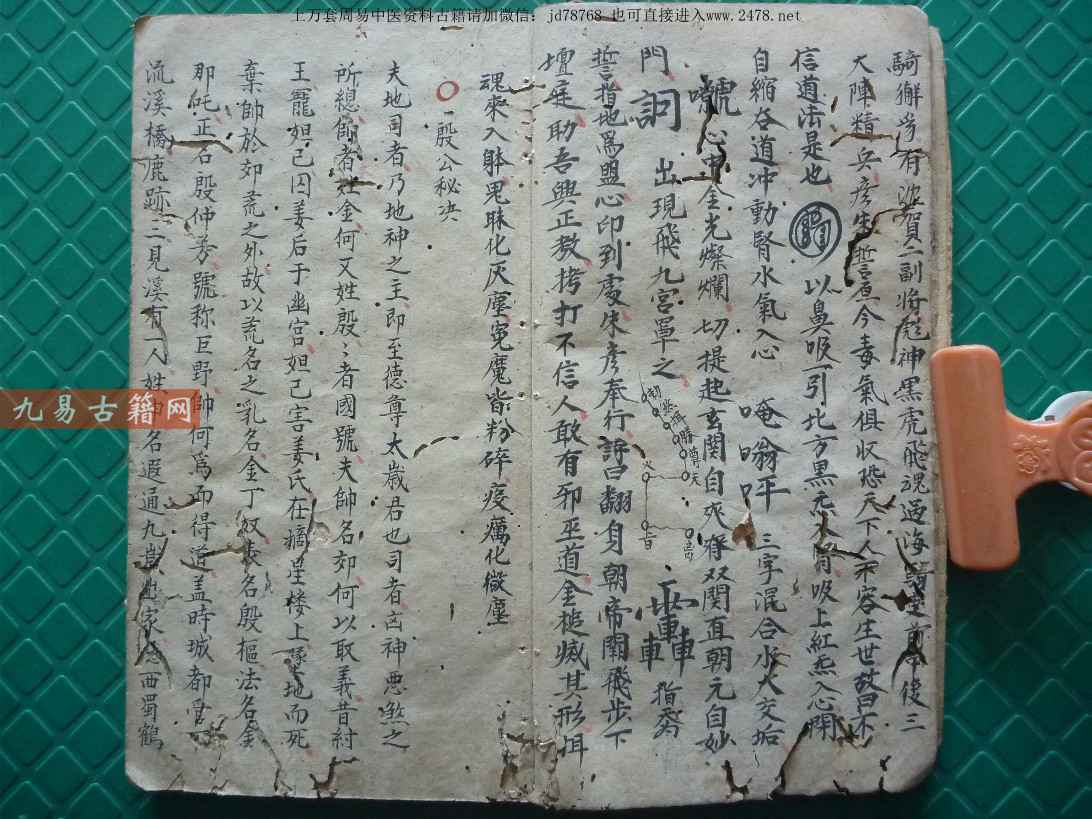 上万套周易中医资料古籍请加微信：jd78768 也可直接进入www.2478.net
騎獬豸有波賀二副將彪神黑虎飛魂過海 前後三
大陣精兵彦朱誓 今毒氣俱收恐天下人不容生世故曰不
信道法是也 以鼻吸一引北方黑炁入腎吸上紅炁入心開
自縮谷道冲動腎水氣入心 唵嗡吽 三字混合水火交垢
心中金光燦爛 切提起玄関自 雙関直朝元自妙
門 詞 出現飛九宮罩之 指
誓指地爲盟心印到處朱彦奉行 翻身朝帝闕飛步下
壇庭助吾興正教拷打不信人敢有邪巫道金槌滅其形
魂來入躰鬼眛化灰塵寃魔皆粉碎疫癘化微塵
一殷公秘决
夫地司者乃地神之主即至德尊太歲君也司者凶神悪煞之
所總 者 金何又姓殷殷者國號夫帥名郊何以取義昔紂
王寵妲己囚姜后于幽宮妲己害姜氏在摘星楼上墜地而死
棄帥於郊荒之外故以荒名之乳名金丁奴 名殷樞法名金
那吒正名殷仲 號称巨野帥何爲而得道盖時城都
流溪橋鹿跡三見溪有一人姓申名遐通九歲出家 西蜀鶴
九易古籍网